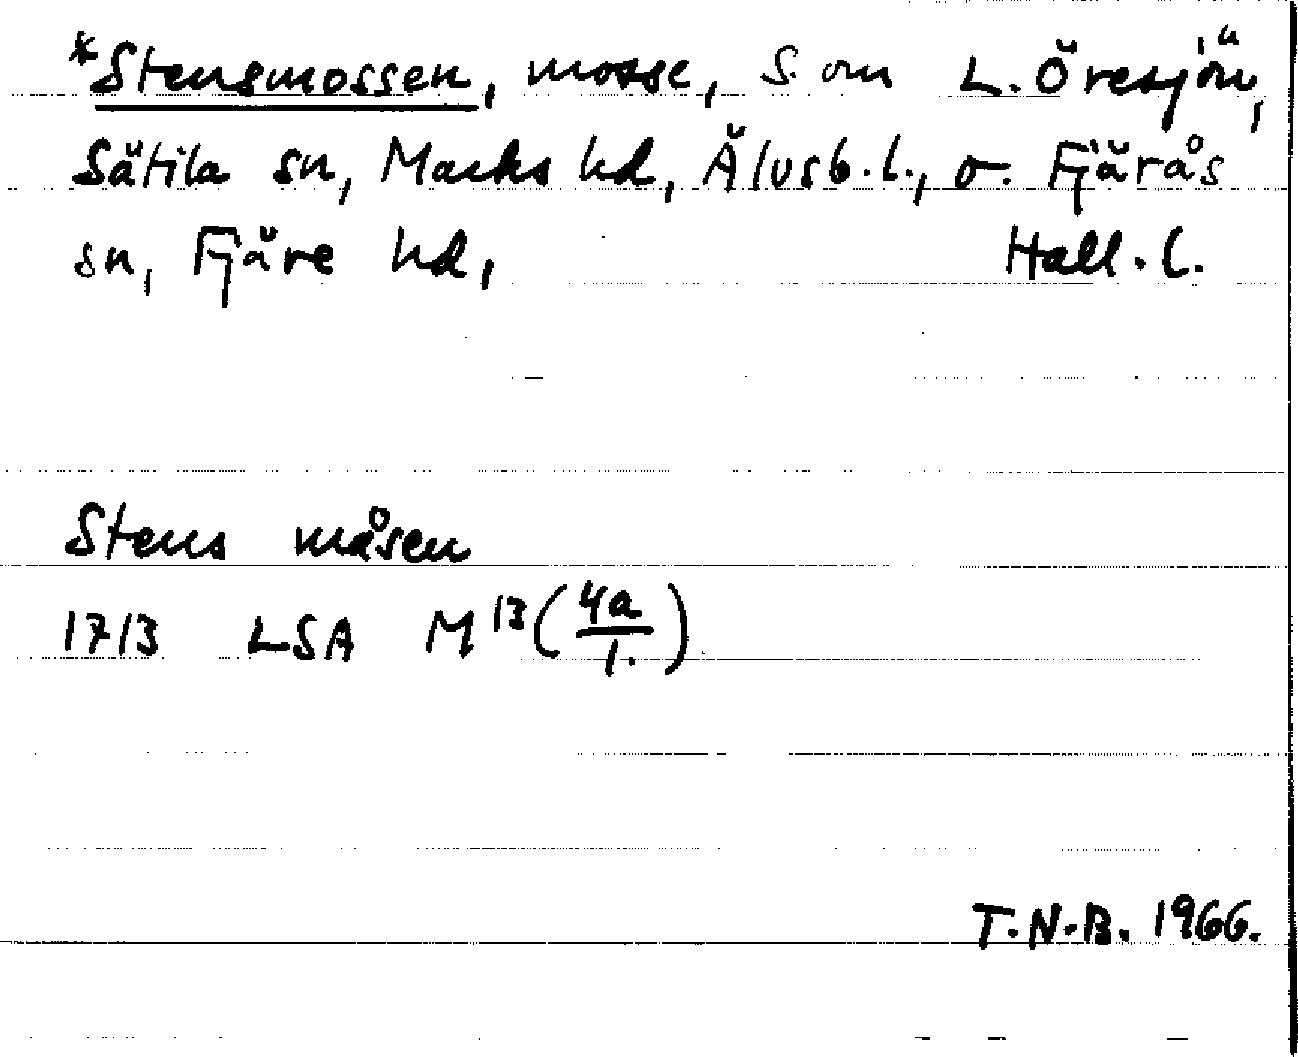 *Stensmossen, mosse, S. om L. Öresjön,
Sätila sn, Marks hd, Älvsb.l., o. Fjärås
sn, Fjäre hd, Hall.l.
Stens måsen
1713 LSA M 13 (4a/1.)
T.N.B. 1966.